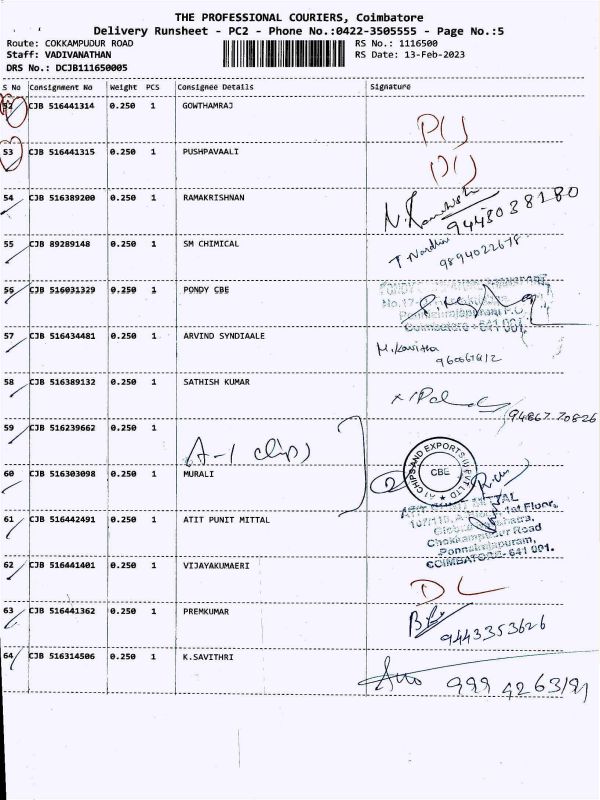 THE PROFESSIONAL COURIERS, Coimbatore
Delivery Runsheet - PC2 - Phone No.:0422-3505555 - Page No.:5
Route: COKKAMPUDUR ROAD
RS No.: 1116500
Staff: VADIVANATHAN
RS Date: 13-Feb-2023
DRS No.: DCJB111650005
S No Consignment No Weight PCS Consignee Details Signature
52 CJB 516441314 0.250 1 GOWTHAMRAJ
53 CJB 516441315 0.250 1 PUSHPAVAALI
54 CJB 516389200 0.250 1 RAMAKRISHNAN
9443038180
55 CJB 89289148 0.250 1 SM CHIMICAL
9894022678
56 CJB 516031329 0.250 1 PONDY CBE
Coimbatore - 641 001.
57 CJB 516434481 0.250 1 ARVIND SYNDIAALE
M. Kavitha
58 CJB 516389132 0.250 1 SATHISH KUMAR
94867 70826
59 CJB 516239662 0.250 1
A-1 chips
60 CJB 516303098 0.250 1 MURALI
A1 CHIPS AND EXPORTS (I) PVT. LTD
CBE
61 CJB 516442491 0.250 1 ATIT PUNIT MITTAL
1st Floor,
Chokkampudur Road
Ponnaiajapuram,
COIMBATORE- 641 001.
62 CJB 516441401 0.250 1 VIJAYAKUMAERI
DL
63 CJB 516441362 0.250 1 PREMKUMAR
9443353626
64 CJB 516314506 0.250 1 K.SAVITHRI